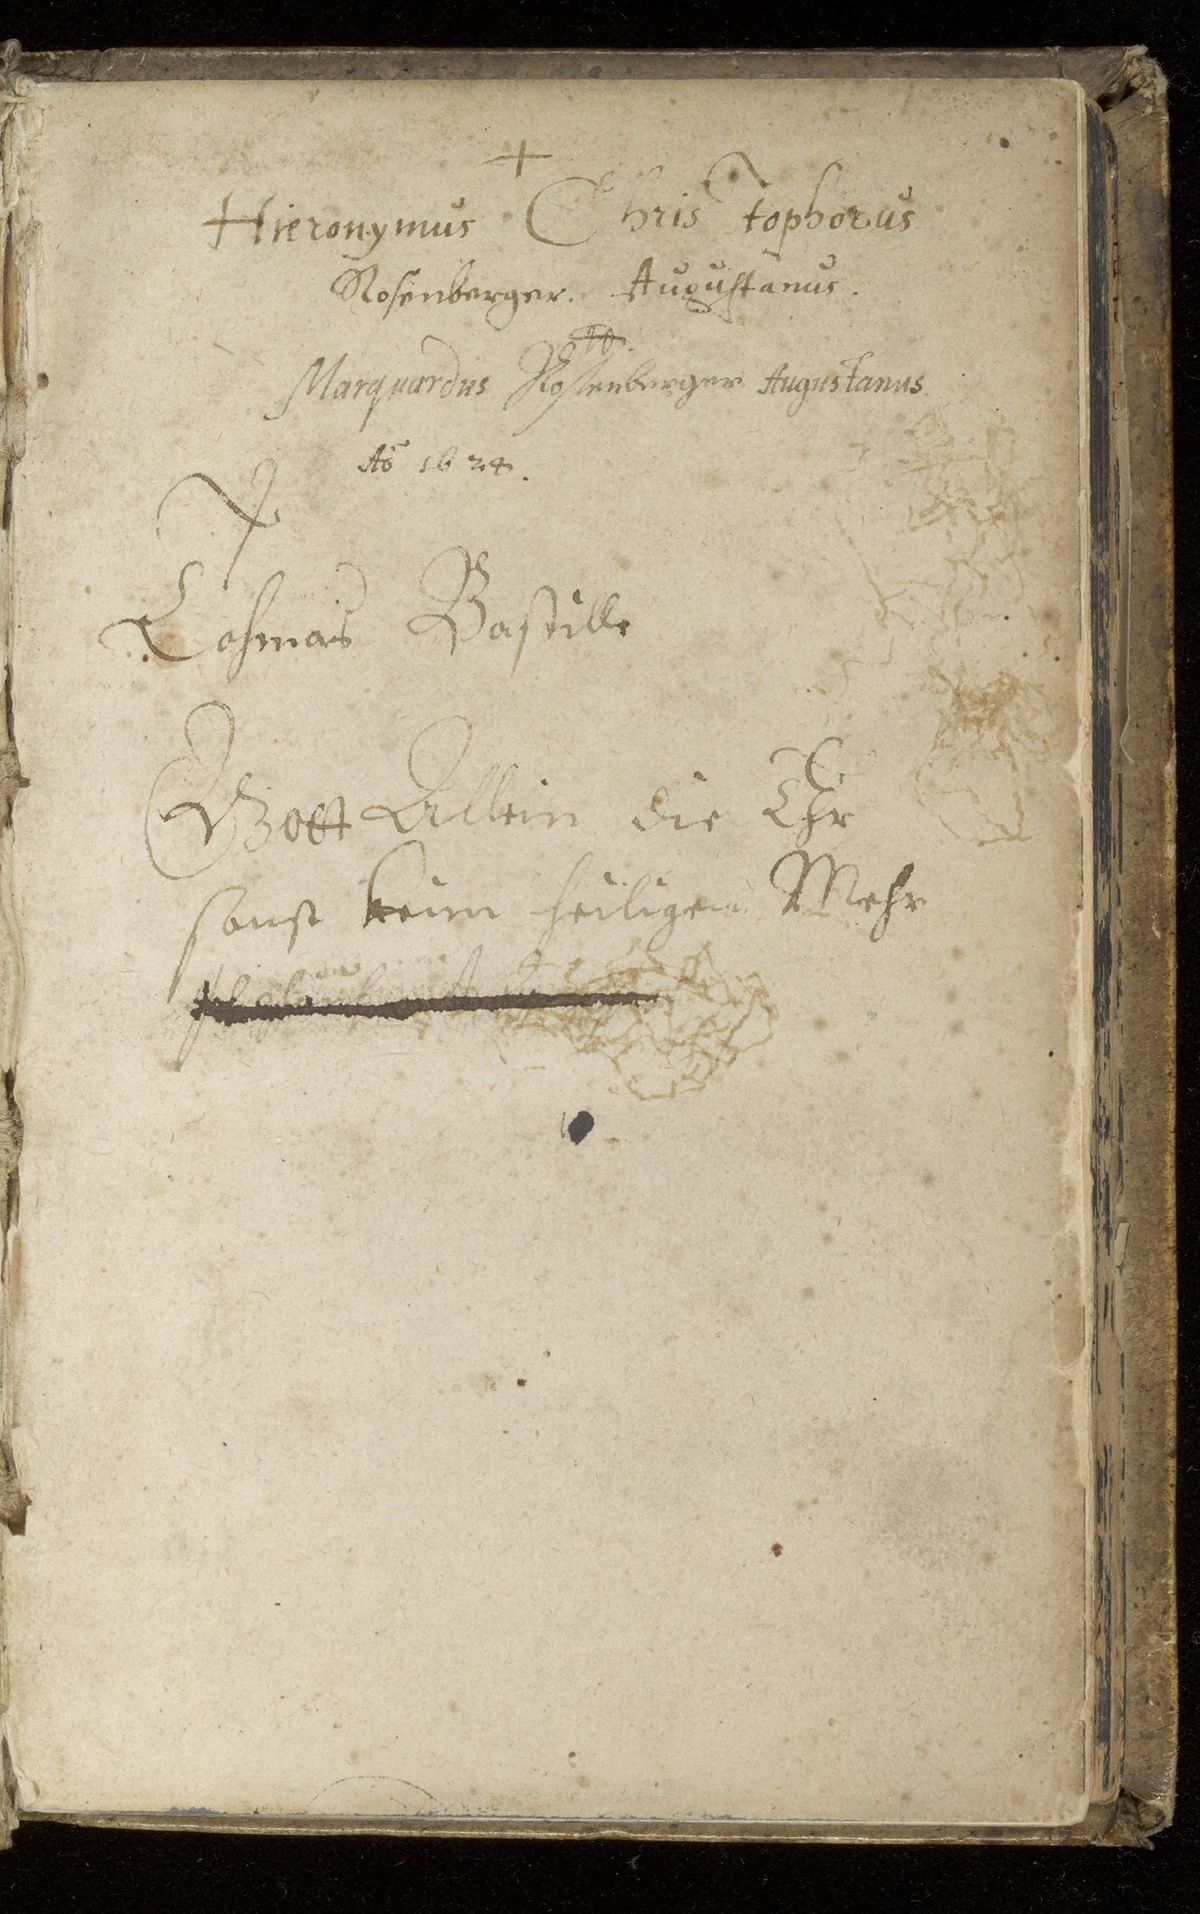 Hieronymus Christophorus
Rosenberger. Augustanus.
Marquardus Rossenberger Augustanus
Aō 1624.
Tohmas Bastille
Gott Allein die Ehr
sonst keim heiligen Mehr